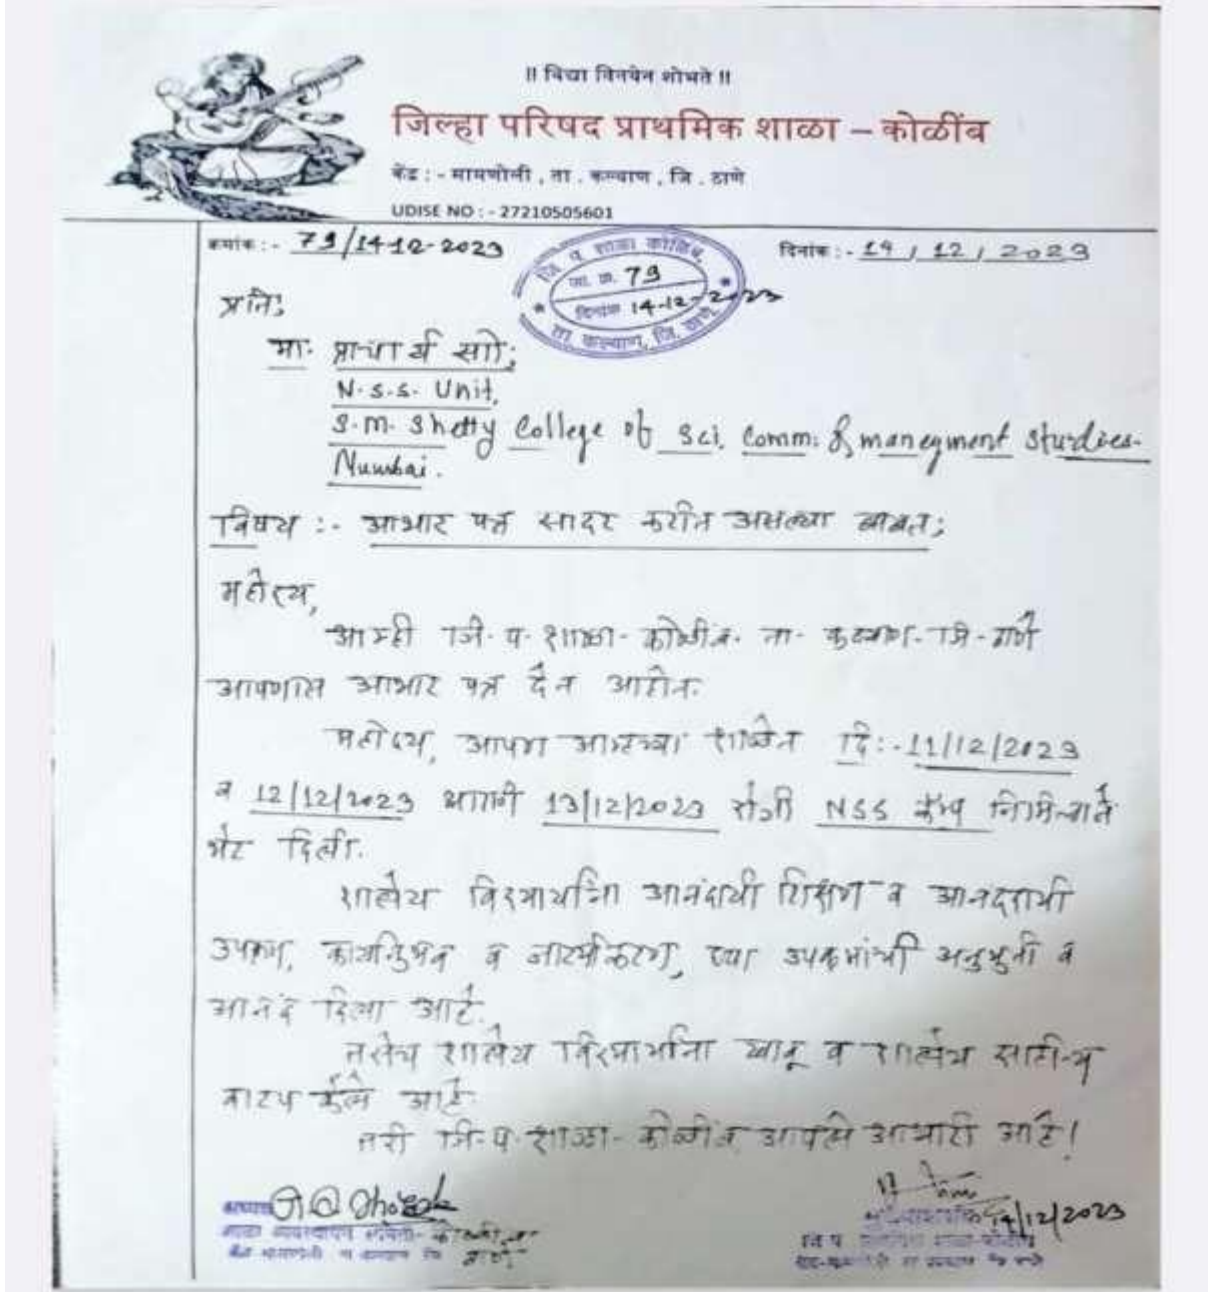 ॥ विद्या विनयेन शोभते ॥
जिल्हा परिषद प्राथमिक शाळा – कोळींब
केंद्र : - मामणोली , ता . कल्याण , जि . ठाणे
UDISE NO : - 27210505601
क्रमांक : - 79/14-12-2023
दिनांक : - 14 / 12 / 2023
जि. प. शाळा कोळिंब,
जा. क्र. 79
दिनांक 14-12-2023
ता. कल्याण, जि. ठाणे
प्रति,
मा. प्राचार्य सो,
N.S.S. Unit,
S.M. Shetty College of Sci. Comm. & manegment studies.
Mumbai.
विषय :- आभार पत्र सादर करीत असल्या बाबत;
महोदय,
आम्ही जि. प. शाळा - कोळींब. ता. कल्याण. जि - ठाणे
आपणास आभार पत्र देत आहोत.
महोदय, आपण आमच्या शाळेत दि: - 11/12/2023
व 12/12/2023 आणि 13/12/2023 रोजी NSS कॅम्प निमित्ताने
भेट दिली.
शालेय विद्यार्थ्यांना आनंदायी शिक्षण व आनंददायी
उपक्रम, कार्यानुभव व नाट्यीकरण, ह्या उपक्रमांची अनुभुती व
आनंद दिला आहे.
तसेच शालेय विद्यार्थ्यांना खाऊ व शालेय साहित्य
वाटप केले आहे.
तरी जि. प. शाळा - कोळींब आपले आभारी आहे!
अध्यक्ष
शाळा व्यवस्थापन समिती - कोळींब
केंद्र मामणोली ता कल्याण जि ठाणे
14/12/2023
मुख्याध्यापक
जि प प्राथमिक शाळा - कोळींब
केंद्र-मामणोली ता कल्याण जि ठाणे